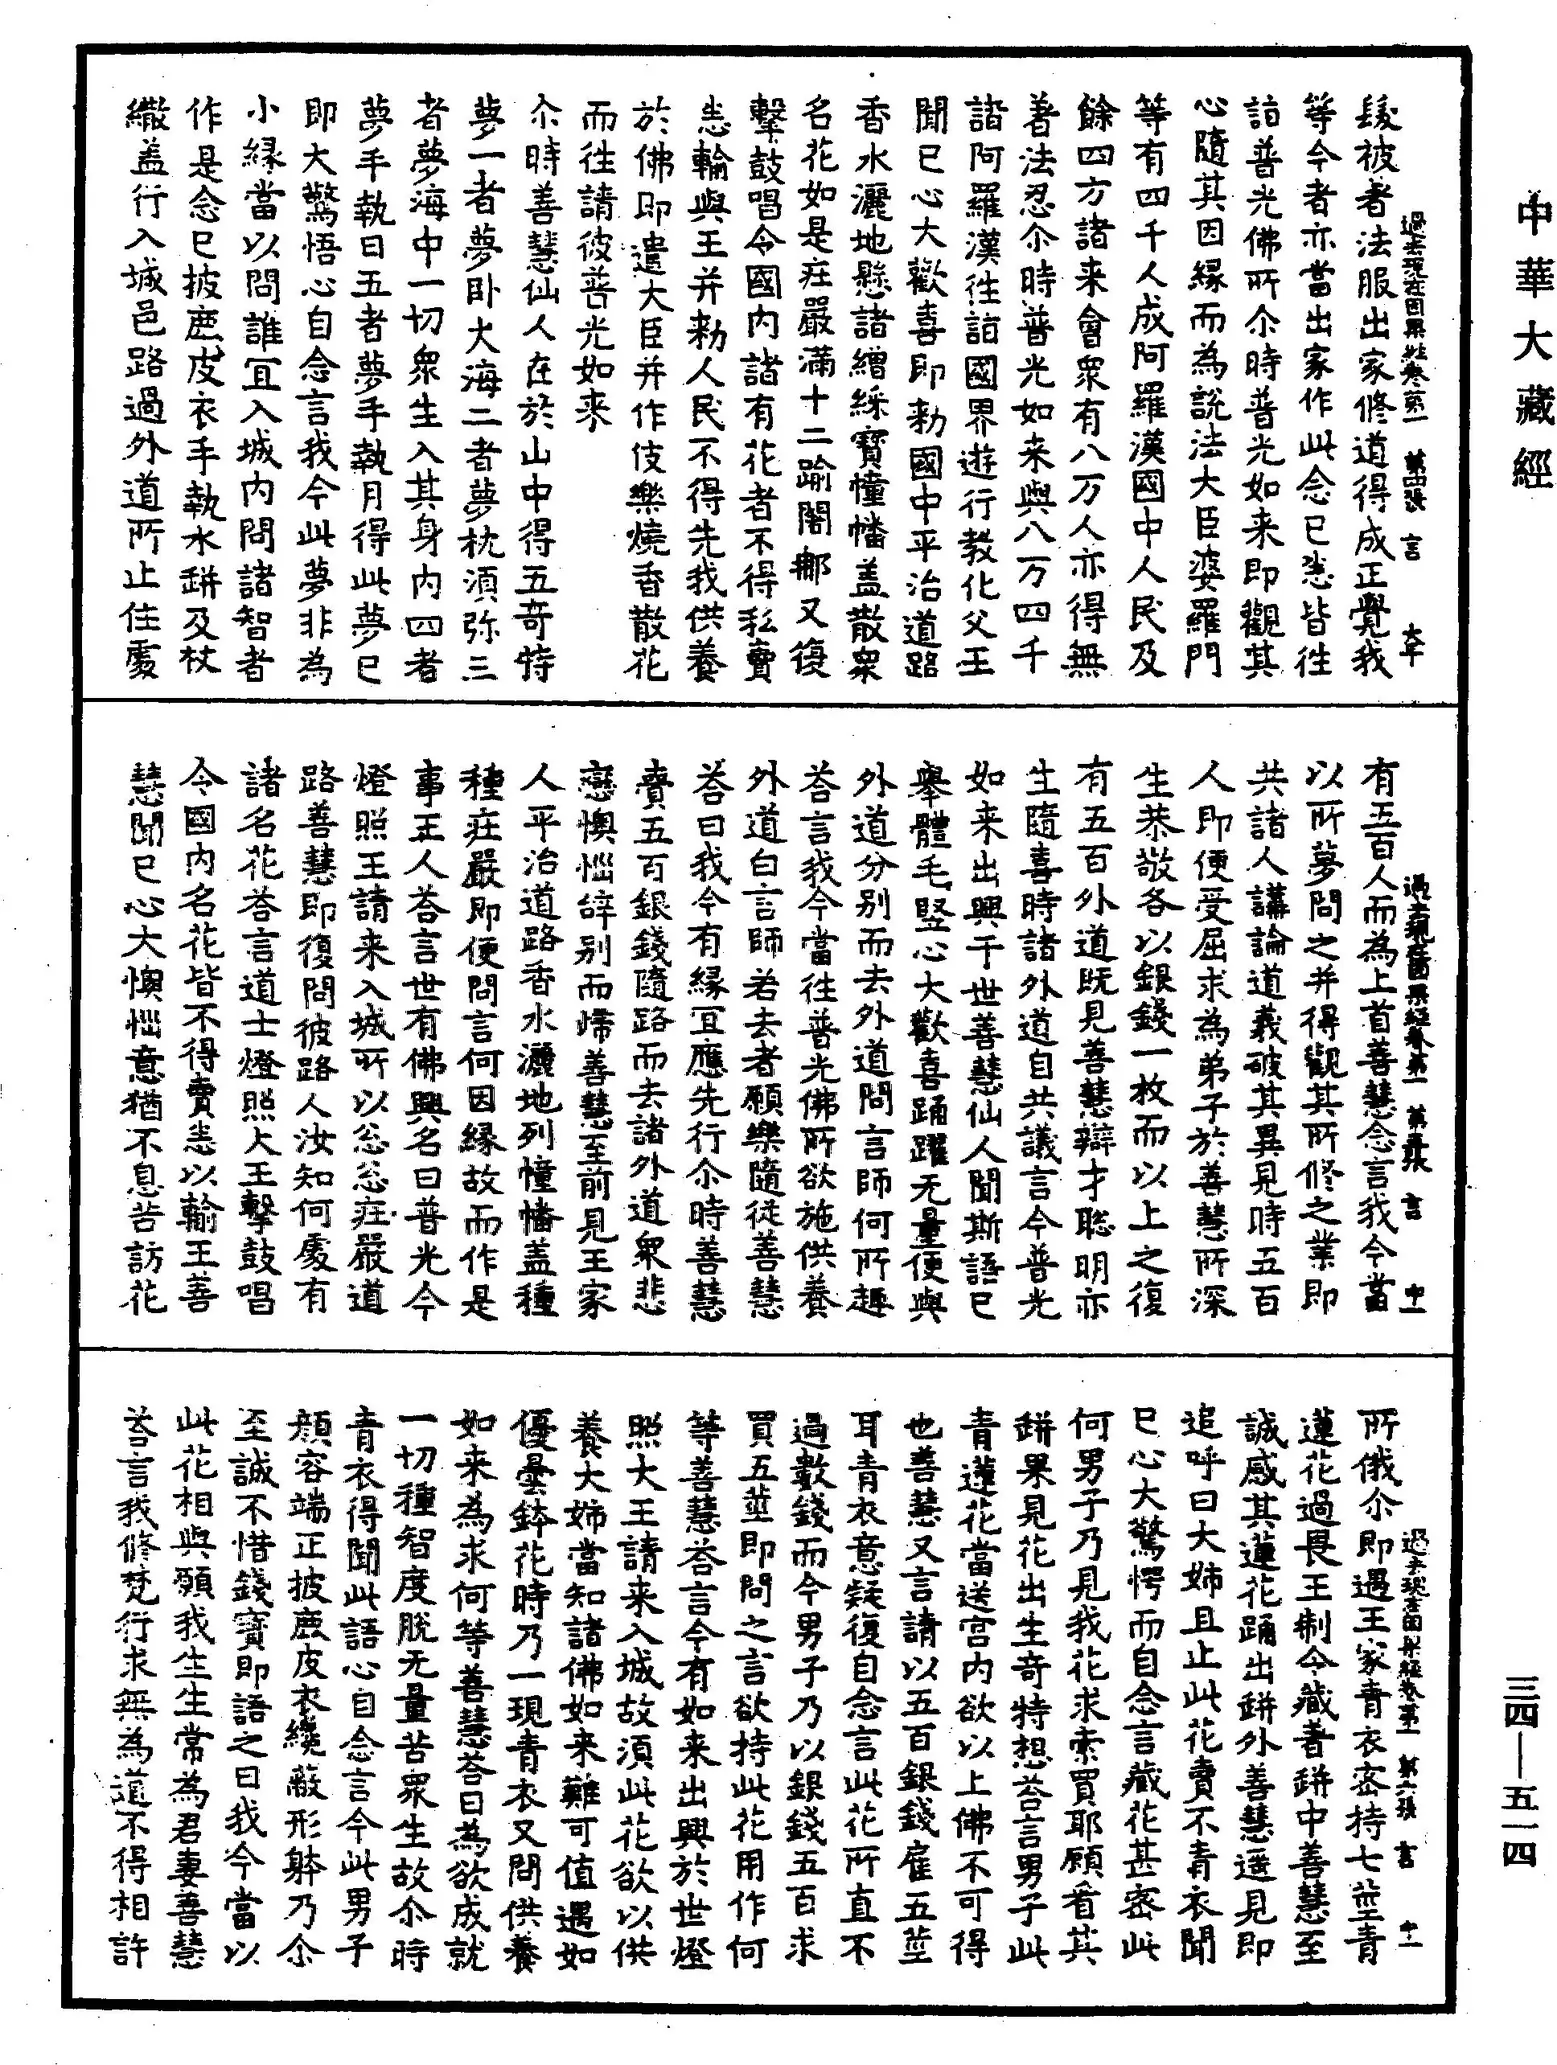 中華大藏經
過去現在因果經卷第一 第四張 言
髮被著法服出家修道得成正覺我
等今者亦當出家作此念已悉皆往
詣普光佛所尒時普光如来即觀其
心隨其因緣而為說法大臣婆羅門
等有四千人成阿羅漢國中人民及
餘四方諸来會衆有八万人亦得無
著法忍尒時普光如来與八万四千
諸阿羅漢往詣國界遊行教化父王
聞已心大歡喜即勑國中平治道路
香水灑地懸諸繒綵寶幢幡盖散衆
名花如是莊嚴滿十二踰闍那又復
擊鼓唱令國内諸有花者不得私賣
悉輸與王并勑人民不得先我供養
於佛即遣大臣并作伎樂燒香散花
而往請彼普光如来
尒時善慧仙人在於山中得五奇特
夢一者夢卧大海二者夢枕湏弥三
者夢海中一切衆生入其身内四者
夢手執日五者夢手執月得此夢已
即大驚悟心自念言我今此夢非為
小緣當以問誰宜入城内問諸智者
作是念已披鹿皮衣手執水缾及杖
繖盖行入城邑路過外道所止住處
過去現在因果經卷第一 第五張 言
有五百人而為上首善慧念言我今當
以所夢問之并得觀其所修之業即
共諸人講論道義破其異見時五百
人即便受屈求為弟子於善慧所深
生恭敬各以銀錢一枚而以上之復
有五百外道既見善慧辯才聡明亦
生隨喜時諸外道自共議言今普光
如来出興于世善慧仙人聞斯語已
舉體毛竪心大歡喜踊躍无量便與
外道分别而去外道問言師何所趣
荅言我今當往普光佛所欲施供養
外道白言師若去者願樂隨從善慧
荅曰我今有緣宜應先行尒時善慧
賷五百銀錢隨路而去諸外道衆悲
戀懊惱辝别而歸善慧至前見王家
人平治道路香水灑地列幢幡盖種
種莊嚴即便問言何因緣故而作是
事王人荅言世有佛興名曰普光今
燈照王請来入城所以忩忩莊嚴道
路善慧即復問彼路人汝知何處有
諸名花荅言道士燈照大王擊鼓唱
令國内名花皆不得賣悉以輸王善
慧聞已心大懊惱意猶不息苦訪花
過去現在因果經卷第一 第六張 言
所俄尒即遇王家青衣密持七莖青
蓮花過畏王制令藏著缾中善慧至
誠感其蓮花踊出缾外善慧遥見即
追呼曰大姉且止此花賣不青衣聞
已心大驚愕而自念言藏花甚密此
何男子乃見我花求索買耶顧看其
缾果見花出生奇特想荅言男子此
青蓮花當送宫内欲以上佛不可得
也善慧又言請以五百銀錢雇五莖
耳青衣意疑復自念言此花所直不
過數錢而今男子乃以銀錢五百求
買五莖即問之言欲持此花用作何
等善慧荅言今有如来出興於世燈
照大王請来入城故湏此花欲以供
養大姉當知諸佛如来難可值遇如
優曇鉢花時乃一現青衣又問供養
如来為求何等善慧荅曰為欲成就
一切種智度脫无量苦衆生故尒時
青衣得聞此語心自念言今此男子
顔容端正披鹿皮衣纔蔽形躰乃尒
至誠不惜錢寶即語之曰我今當以
此花相與願我生生常為君妻善慧
荅言我修梵行求無為道不得相許
三四—五一四